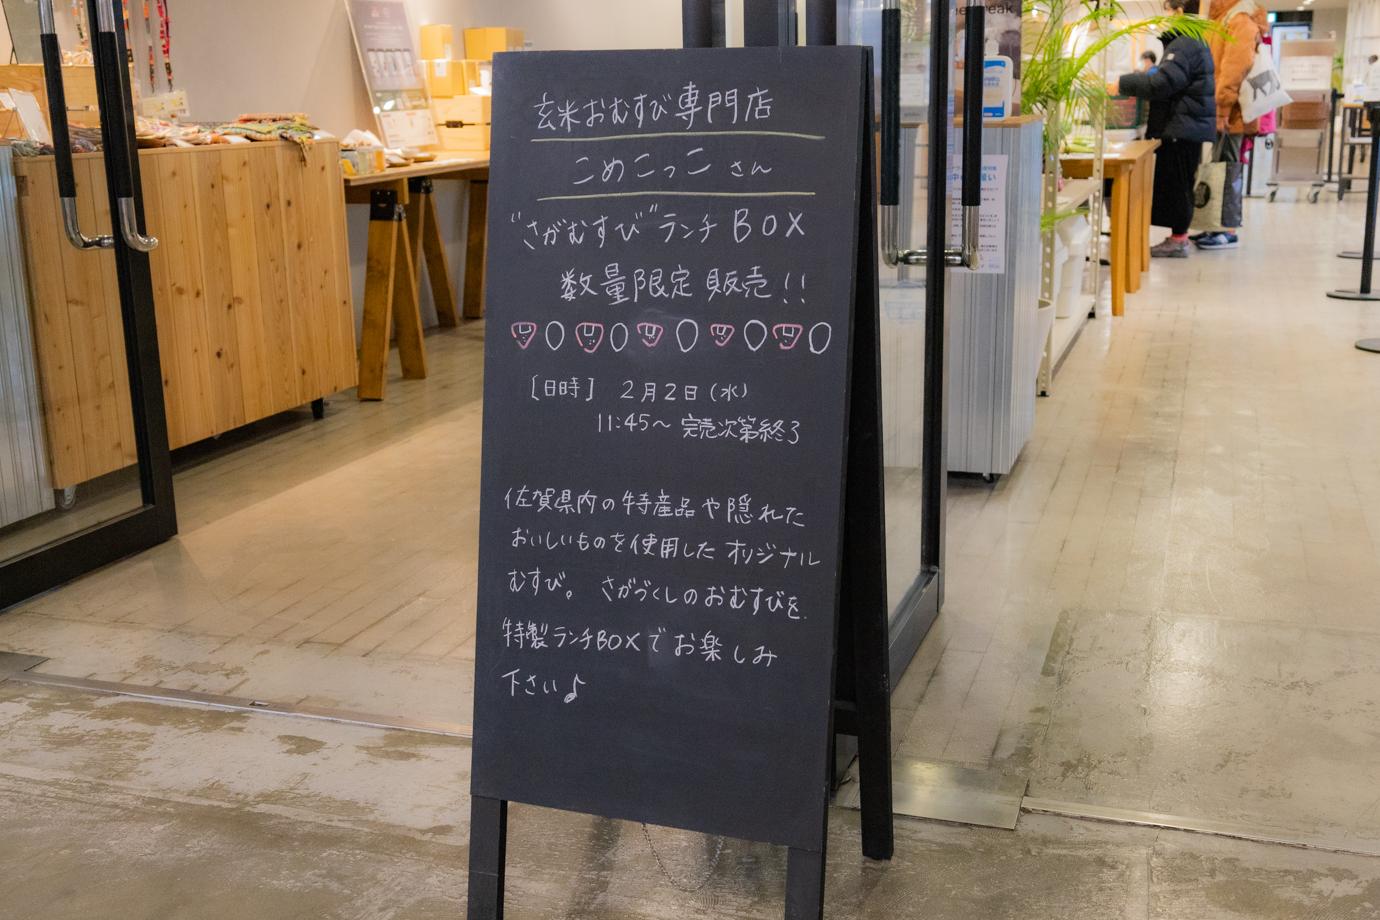 玄米おむすび専門店
こめこっこ さん
"さがむすび"ランチBOX
数量限定 販売!!
[日時] 2月2日(水)
11:45～ 完売次第終了
佐賀県内の特産品や隠れた
おいしいものを使用した オリジナル
むすび。 さがづくしのおむすびを
特製ランチBOXでお楽しみ
下さい♪